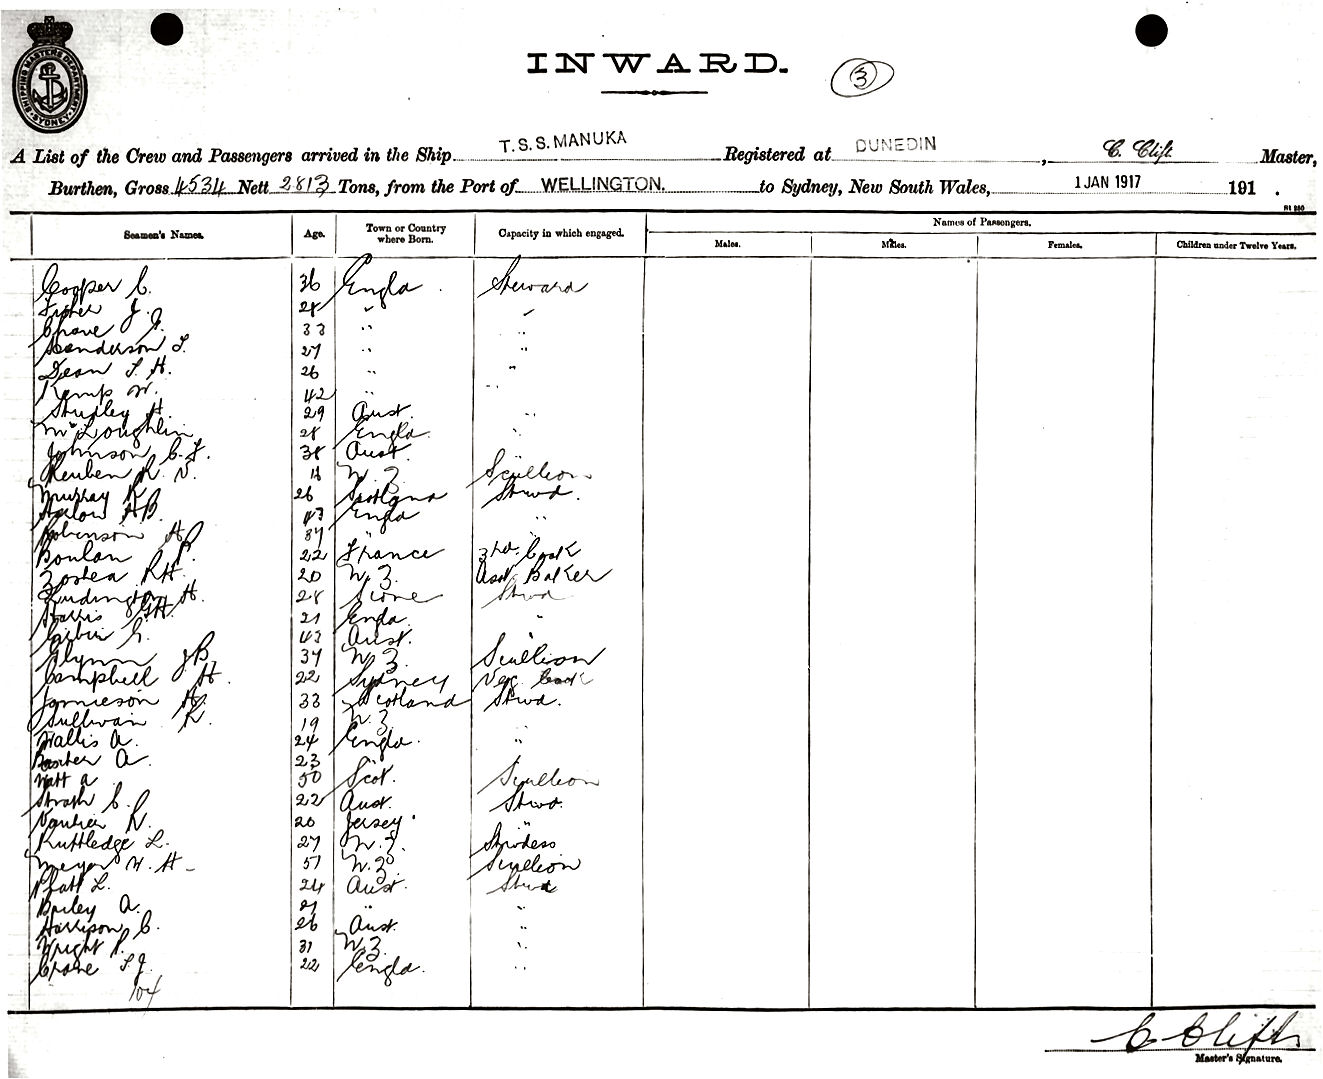 SHIPPING MASTERS DEPARTMENT SYDNEY
INWARD.
3
A List of the Crew and Passengers arrived in the Ship T.S.S. MANUKA Registered at DUNEDIN, C. Clift Master,
Burthen, Gross 4534 Nett 2813 Tons, from the Port of WELLINGTON. to Sydney, New South Wales, 1 JAN 1917 191 .
Seamen's Names. Age. Town or Country where Born. Capacity in which engaged. Names of Passengers.
Males. Males. Females. Children under Twelve Years.
Cooper C. 36 Engla Steward
Fisher J. 28 " "
33 " "
Sanderson T. 27 " "
Dean T. H. 26 " "
Kemp W. 42 " "
Studley H. 29 Aust. "
McLoughlin 28 Engla. "
Johnson C. F. 38 Aust. "
Reuben R. V. N.Z. Scullion
Murray R. 26 Scotland Stwd.
43 Engla "
Robinson H "
Boulan P. 22 France 3rd. Cook
R H. 20 N.Z. Asst Baker
H. 28 Stwd
G H. 21 Engla. "
G. 43 Aust. "
Glynn J B 34 N.Z. Scullion
Campbell H. 22 Sydney Veg. Cook
Jamieson A. 33 Scotland Stwd.
Sullivan R. 19 N.Z. "
Wallis A. 24 Engla. "
A. 23 " "
Watt A 50 Scot. Scullion
Strath C. 22 Aust. Stwd.
R. 20 Jersey "
Ruttledge L. 27 N.Z. Stwdess
Meyer W. H. 51 N.Z. Scullion
Pratt L. 24 Aust. Stwd
Bailey A. 21 " "
Harrison C. 26 Aust. "
Wright P. 31 N.Z. "
T. J. 22 Engla. "
104
C Clift
Master's Signature.